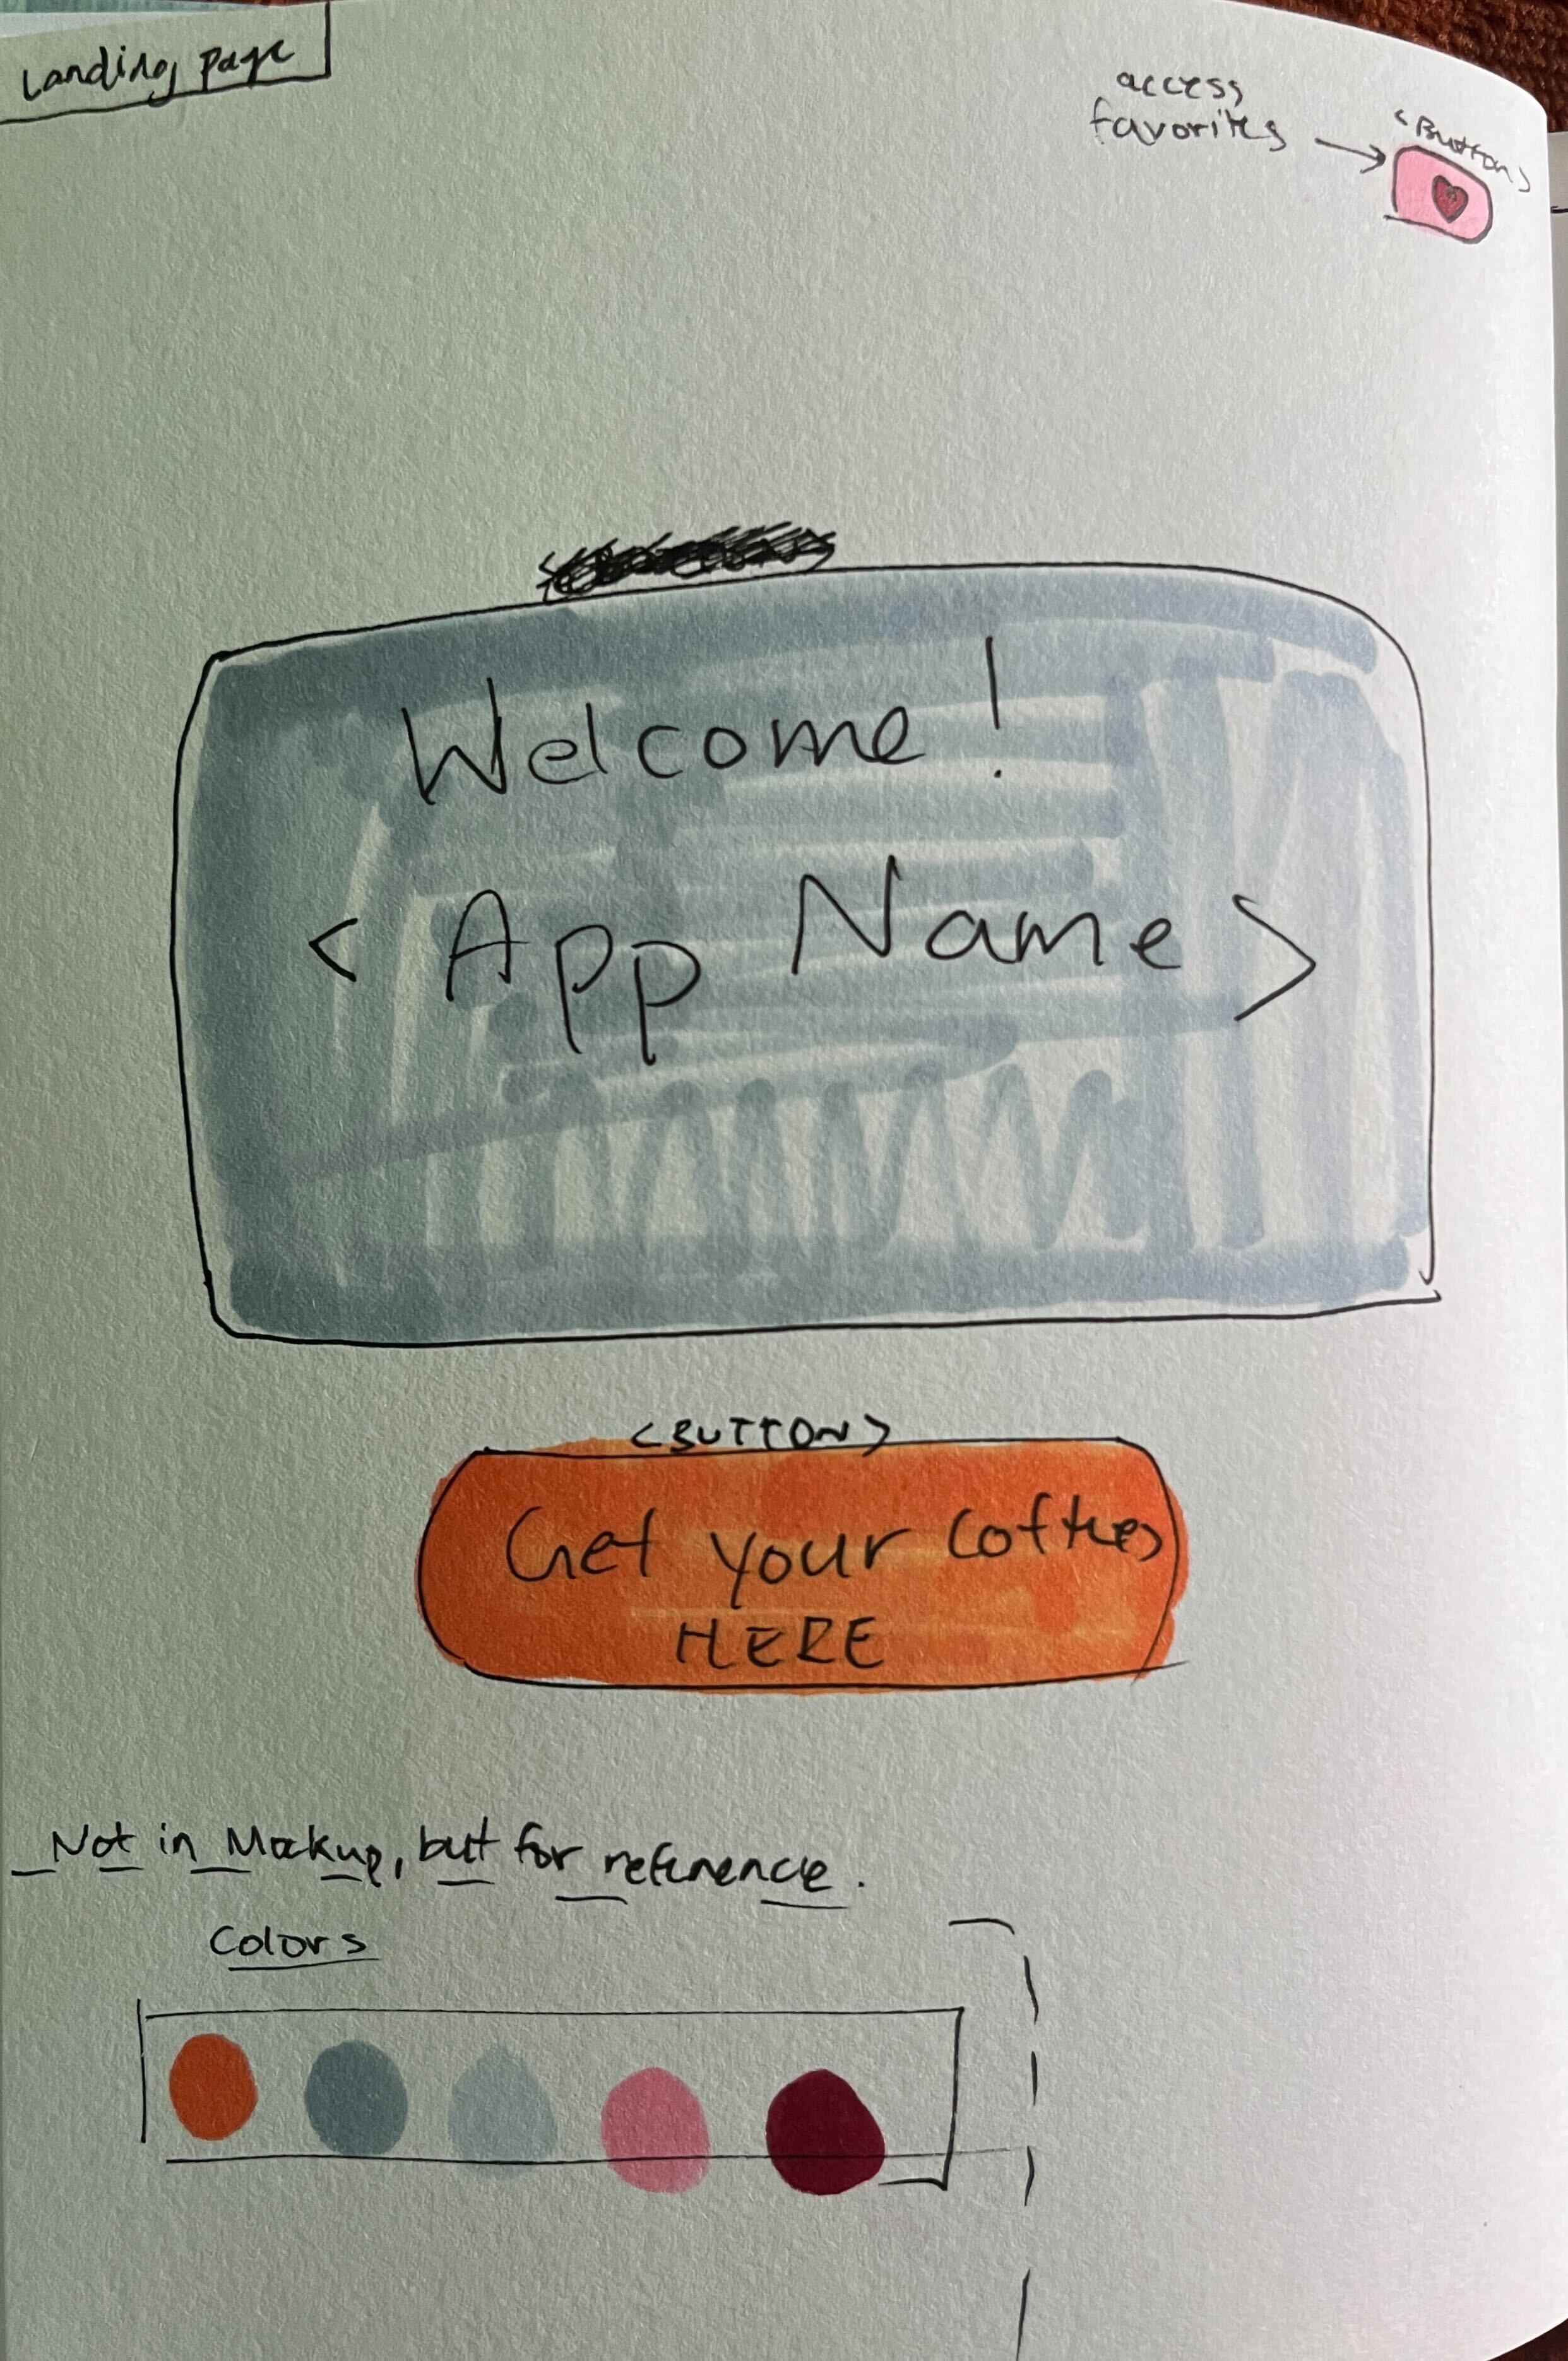 Landing Page
access
favorites
<Button>
Welcome!
< App Name >
<BUTTON>
Get your Coffees
HERE
Not in Mockup, but for reference.
Colors